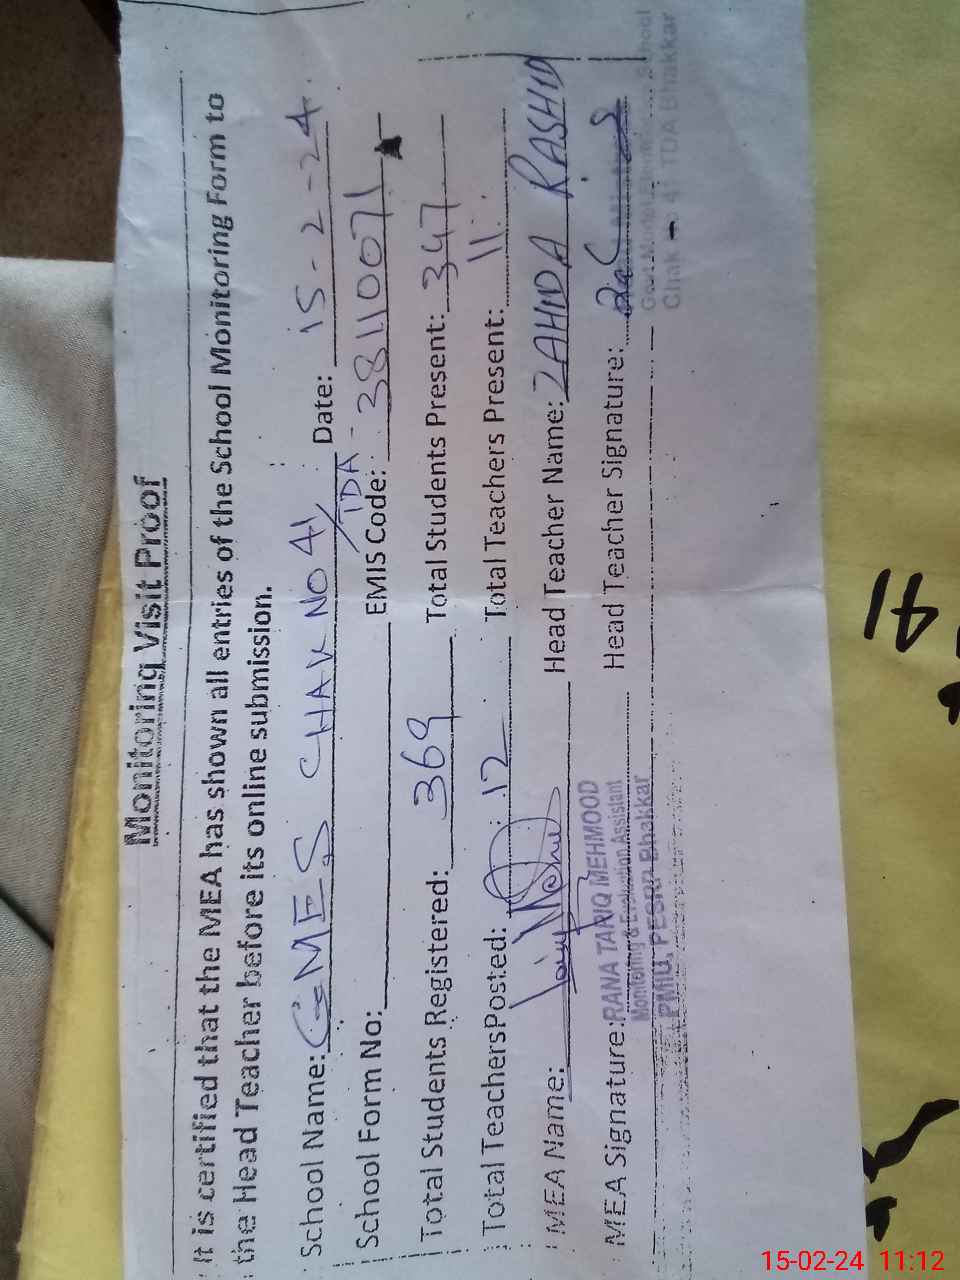 Monitoring Visit Proof
It is certified that the MEA has shown all entries of the School Monitoring Form to
the Head Teacher before its online submission.
School Name: GMES CHAK NO 41/TDA Date: 15-2-24.
School Form No: EMIS Code: 38110071
Total Students Registered: 369 Total Students Present: 347
Total Teachers Posted: 12 Total Teachers Present: 11
MEA Name: Head Teacher Name: ZAHIDA RASHID
MEA Signature: Head Teacher Signature:
RANA TARIQ MEHMOOD
Monitoring & Evaluation Assistant
PMIU, PESRP Bhakkar
Govt. Model School
Chak 41 TDA Bhakkar
41
15-02-24 11:12